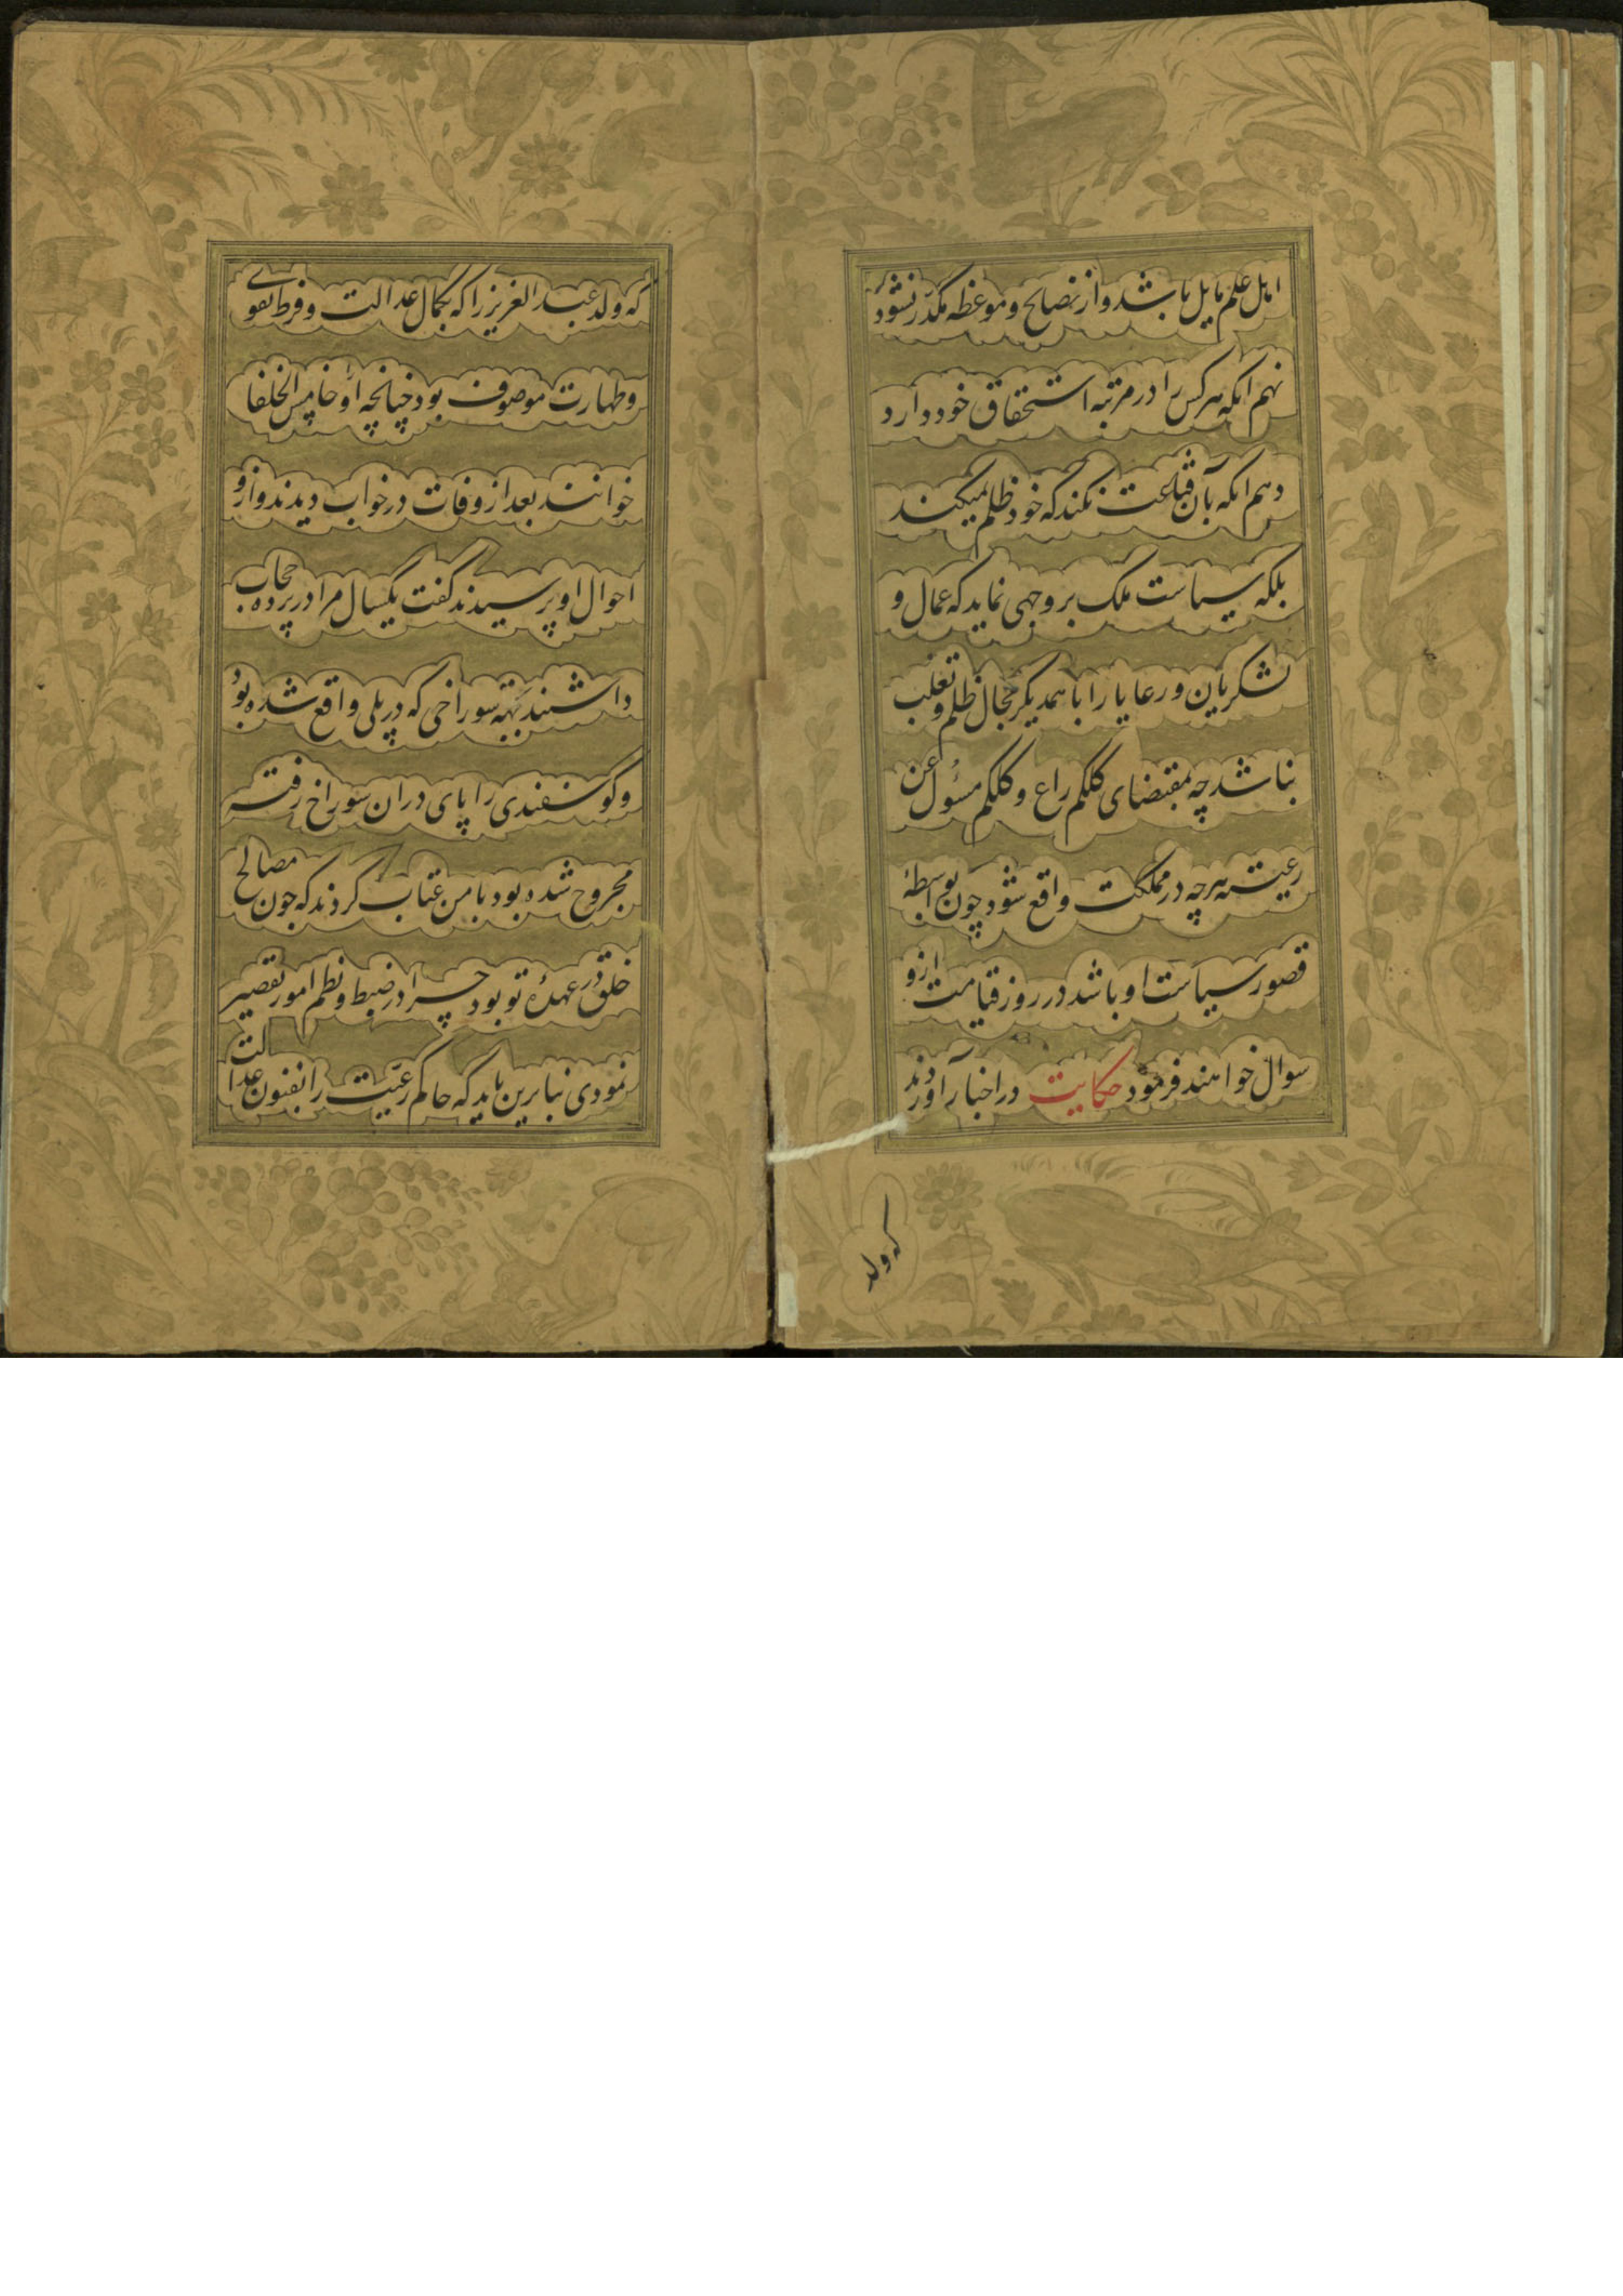 اهل علم مایل باشد و از نصایح و موعظه مکدر نشود
نهم انکه هر کس را در مرتبه استحقاق خود دارد
دهم انکه بآن قناعت نکند که خود ظلم نمیکند
بلکه سیاست ملک بر وجهی نماید که عمال و
لشکریان و رعایا را با همدیگر مجال ظلم و تغلب
نباشد چه بمقتضای کلکم راع و کلکم مسؤل عن
رعیته هرچه در مملکت واقع شود چون بواسطهٔ
قصور سیاست او باشد در روز قیامت ازو
سوال خواهند فرمود حکایت در اخبار آوردند
که ولد
که ولد عبد العزیز را که بکمال عدالت و فرط تقوی
و طهارت موصوف بود چنانچه او را خامس الخلفا
خوانند بعد از وفات در خواب دیدند و ازو
احوال او پرسیدند گفت یکسال مرا در پرده حجاب
داشتند بجهته سوراخی که در پلی واقع شده بود
و گوسفندی را پای دران سوراخ رفته
مجروح شده بود با من عتاب کردند که چون مصالح
خلق در عهدهٔ تو بود چرا در ضبط و نظم امور تقصیر
نمودی بنا برین باید که حاکم رعیت را بفنون عدالت